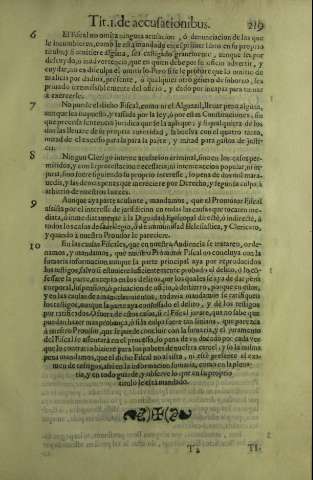 Tit. 1. de accusationibus.
6 El Fiscal no omita ninguna accusacion, ò denunciacion de las que
le incumbieren, como le està mandado en el primer libro en su proprio
titulo; y si omitiere alguna, sea castigado gravemente, aunque sea por
descuydo, ò inadvertencia, que en quien debe por su oficio advertir, y
cuydar, no es disculpa el omitir lo. Pero si se le probare que lo omitio de
malicia por dadiva, presente, ò qualquier otro genero de soborno, sea
privado irremissiblemente del oficio, y quede por incapaz para tornar
à exercerle.
7 No puede el dicho Fiscal, como ni el Alguazil, llevar pena alguna,
aunque sea impuesta, y tassada por la ley, ò por estas Constituciones, sin
que preceda sentencia juridica que se la aplique; y si qualquiera de los
dos las llevare de su propria autoridad, la buelva con el quatro tanto,
mitad del excesso para la parte, y mitad para gastos de justicia.
8 Ningun Clerigo intente accusacion criminal, sino en los casos permitidos,
y con la protestacion necessaria, ni intervencion popular, ni injurial,
sino fuere siguiendo su proprio interesse, so pena de dos mil maravedis,
y las demàs penas que incurriere por Derecho, y segun la culpa, à
arbitrio de nuestros Iuezes.
9 Aunque aya parte acusante, mandamos, que el Promotor Fiscal
assista por el interesse de jurisdicion en todas las causas que tocaren mediata,
ò immediatamente à la Dignidad Episcopal directè, ò indirectè, à
todos los casos de sacrilegio, ò de immunidad Eclesiastica, y Clericato,
y quando à nuestro Provisor le pareciere.
10 En las causas Fiscales, que en nuestra Audiencia se trataren, ordenamos,
y mandamos, que nuestro Promotor Fiscal no concluya con la
sumaria informacion, aunque la parte principal aya por reproducidos
los testigos, salvo si estuviere suficientemente probado el delito, ò lo confessare
la parte, excepto en los delitos, por los quales se aya de dar pena
corporal, suspension, ò privacion de oficio, ò destierro, porque en estos,
y en las causas de amancebamientos, todavia mandamos se ratifiquen
los testigos, aunque la parte aya confessado el delito, y dè los testigos
por ratificados. O fuera de estos casos, si el Fiscal jurare, que no sabe que
pueda hacer mas probança, ò si la culpa fuere tan liviana, que parezca
à nuestro Provisor, que se puede concluir con la sumaria, y el juramento
del Fiscal se assentarà en el processo, so pena de un ducado por cada vez
que lo contrario hiziere para los pobres de nuestra carcel, y so la misma
pena mandamos, que el dicho Fiscal no assista, ni estè presente al examen
de testigos, assi en la informacion sumaria, como en la plenaria,
y en todo guarde, y observe lo que en su proprio
titulo le està mandado.
T 2 TI-